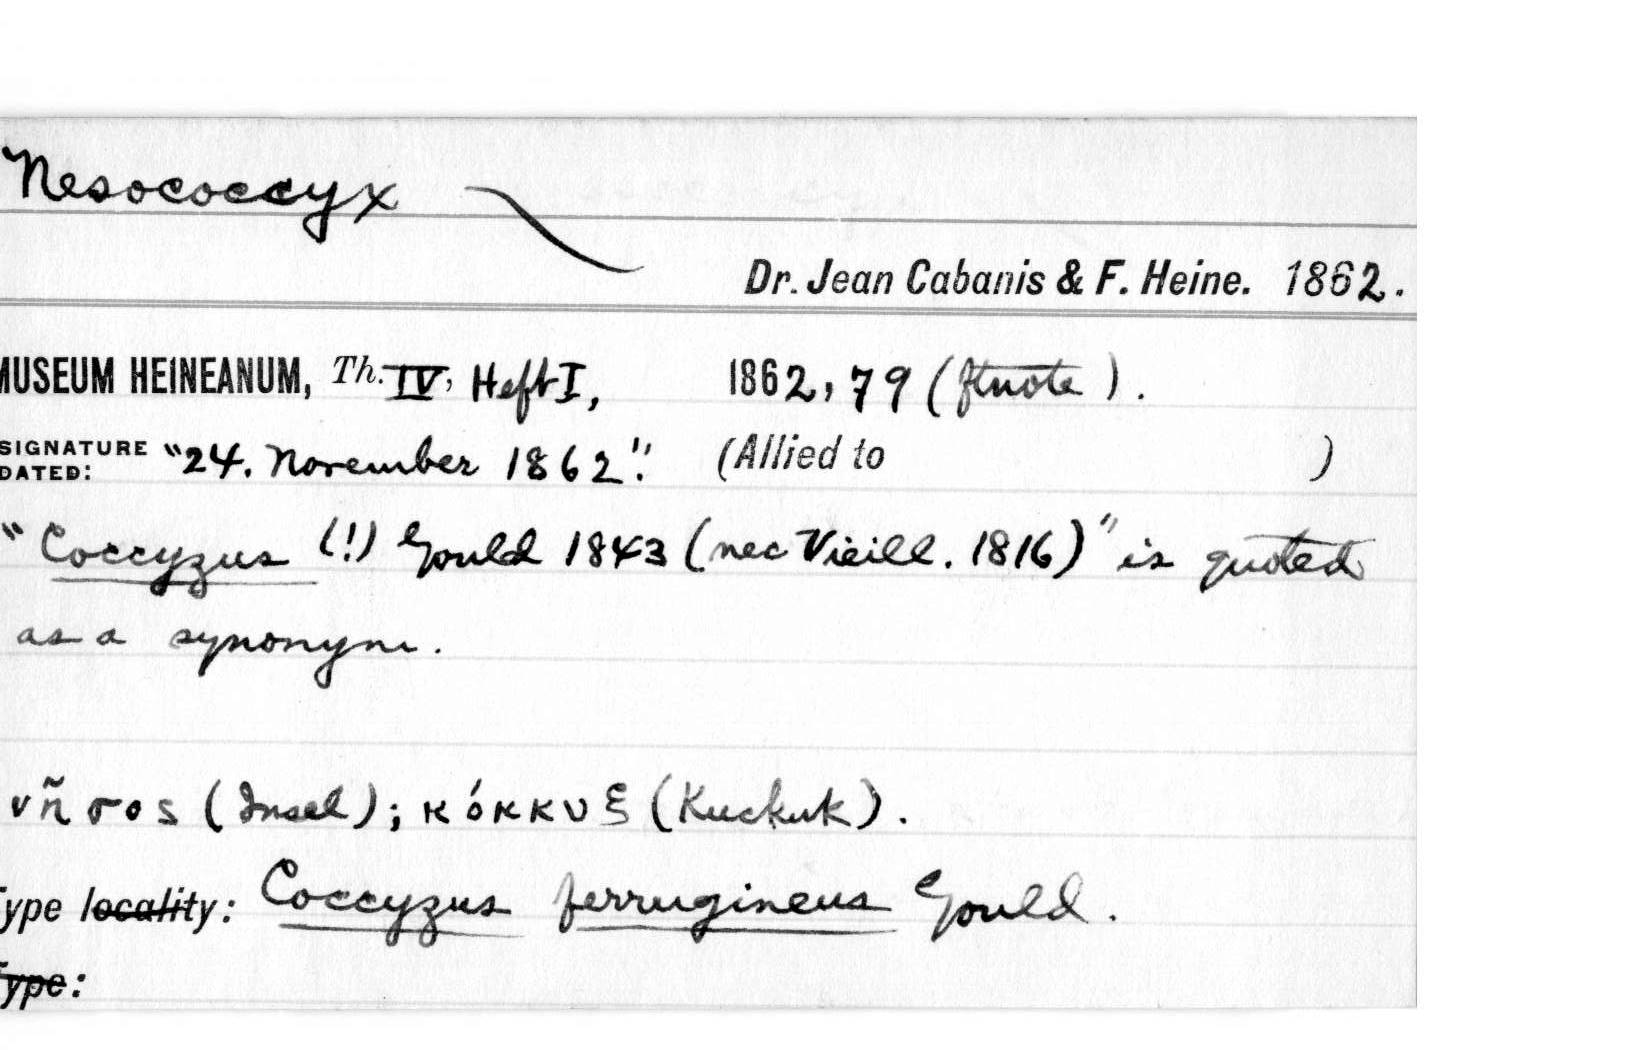 Nesococcyx
Dr. Jean Cabanis & F. Heine. 1862.
MUSEUM HEINEANUM, Th. IV, Heft I, 1862, 79 (ftnote).
SIGNATURE DATED: "24. November 1862". (Allied to )
"Coccyzus (!) Gould 1843 (nec Vieill. 1816)" is quoted
as a synonym.
νῆσος (Insel); κόκκυξ (Kuckuk).
Type locality: Coccyzus ferrugineus Gould.
Type: